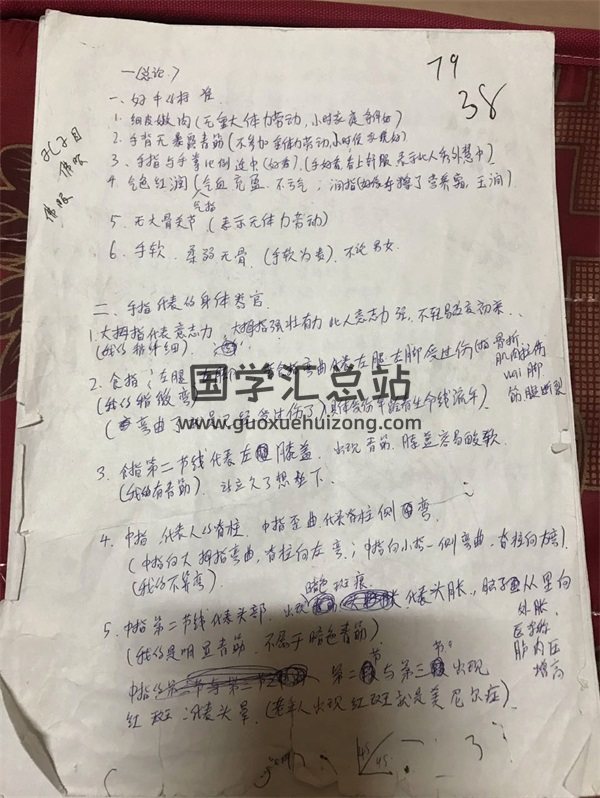 一(总论)
79
38
一、好手的标准
1. 细皮嫩肉(无重大体力劳动,小时家庭条件好)
2. 手背无暴露青筋(不参加重体力劳动,小时候家境好)
3. 手指与手掌比例适中(好看).(手好看看上去舒服 表示此人秀外慧中)
4. 气色红润(气血充盈.不亏气;润指(好像手擦了营养霜,玉润)
气指
5. 无大骨关节(表示无体力劳动)
6. 手软、柔弱无骨.(手软为贵).不论男女
二、手指代表的身体器官
1.大拇指代表意志力,大拇指强壮有力 此人意志力强,不轻易改变初衷..
2. 食指:左腿 弯曲代表左腿左脚受过伤(如骨折
肌肉拉伤
wai脚
筋腱断裂
(我的稍微弯)
3. 食指第二节线代表左膝盖.出现青筋 膝盖容易酸软
(我的有青筋).站立久了想坐下.
4. 中指 代表人的脊柱.中指歪曲代表脊柱侧弯.
(中指向大拇指弯曲,脊柱向左弯.;中指向小指一侧弯曲.脊柱向右弯)
(我的不算弯)
暗色斑痕
5. 中指第二节线代表头部.出现 代表头胀,脑子从里向
外胀.
医学称
颅内压
增高
(我的是明显青筋.不属于暗色青筋)
第二节与第三节出现
红斑:代表头晕.(老年人出现红斑就是美尼尔症)
国学汇总站
www.guoxuehuizong.com